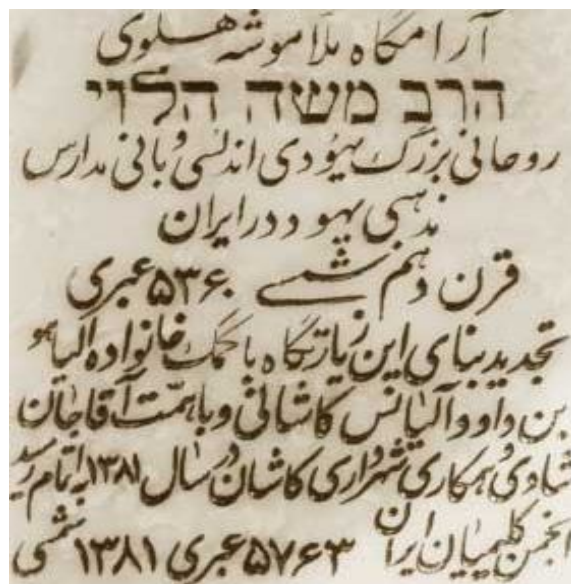 آرامگاه ملا موشه هلوی
הרב משה הלוי
روحانی بزرگ یهودی اندلسی و بانی مدارس
مذهبی یهود در ایران
قرن دهم شمسی ۵۳۶۰ عبری
تجدید بنای این زیارتگاه با کمک خانواده الیاهو
بن داوود آلیانس کاشانی و با همّت آقاجان
شادی و همکاری شهرداری کاشان در سال ۱۳۸۱ به اتمام رسید
انجمن کلیمیان ایران ۵۷۶۳ عبری ۱۳۸۱ شمسی